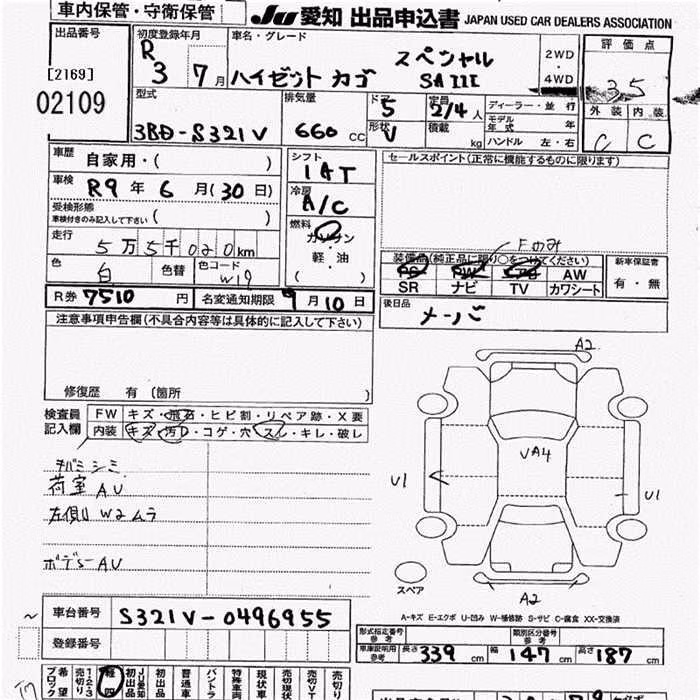 車内保管・守衛保管
JU 愛知 出品申込書 JAPAN USED CAR DEALERS ASSOCIATION
出品番号
[2169]
02109
初度登録年月
R 3 7月
車名・グレード
スペシャル
ハイゼット カゴ SA III
2WD
・
4WD
評価点
3.5
外装 内装
C C
型式
3BD-S321V
排気量
660 CC
ドア
5
形状
V
定員
2/4人
積載
kg
ディーラー・並行
モデル年式 年
ハンドル 左・右
車歴
自家用・( )
車検
R9年6月(30日)
受検形態
車検付きのみ記入して下さい ( )
走行
5万5千020km
色
白
色替
色コード
W19
シフト
IAT
冷房
A/C
燃料
ガソリン
軽・油
( )
セールスポイント(正常に機能するものに限ります)
Fのみ
装備品(純正品に限り○をつけてください)
PS PW エアB AW
SR ナビ TV カワシート
新車保証書
有・無
R券 7510円
名変通知期限 9月10日
後日品
メーバ
注意事項申告欄(不具合内容等は具体的に記入して下さい)
修復歴 有 〔箇所 〕
検査員記入欄
FW キズ・飛石・ヒビ割・リペア跡・X要
内装 キズ・汚レ・コゲ・穴・スレ・キレ・破レ
チバミ シミ
荷室 AU
左側 W2ムラ
ボデー AU
A2
VA4
U1
U1
A2
スペア
A-キズ E-エクボ U-凹み W-補修跡 S-サビ C-腐食 XX-交換済
車台番号
S321V-0496955
登録番号
形式指定番号 参考
類別区分番号 参考
車庫証明用 参考
長さ 339 cm 幅 147 cm 高さ 187 cm
希望ブロック
売切り 1・2・3
軽四
JU愛知 初出品
普通車
バントラ
特殊車両
現状車
売切現状
売切VT
売切り